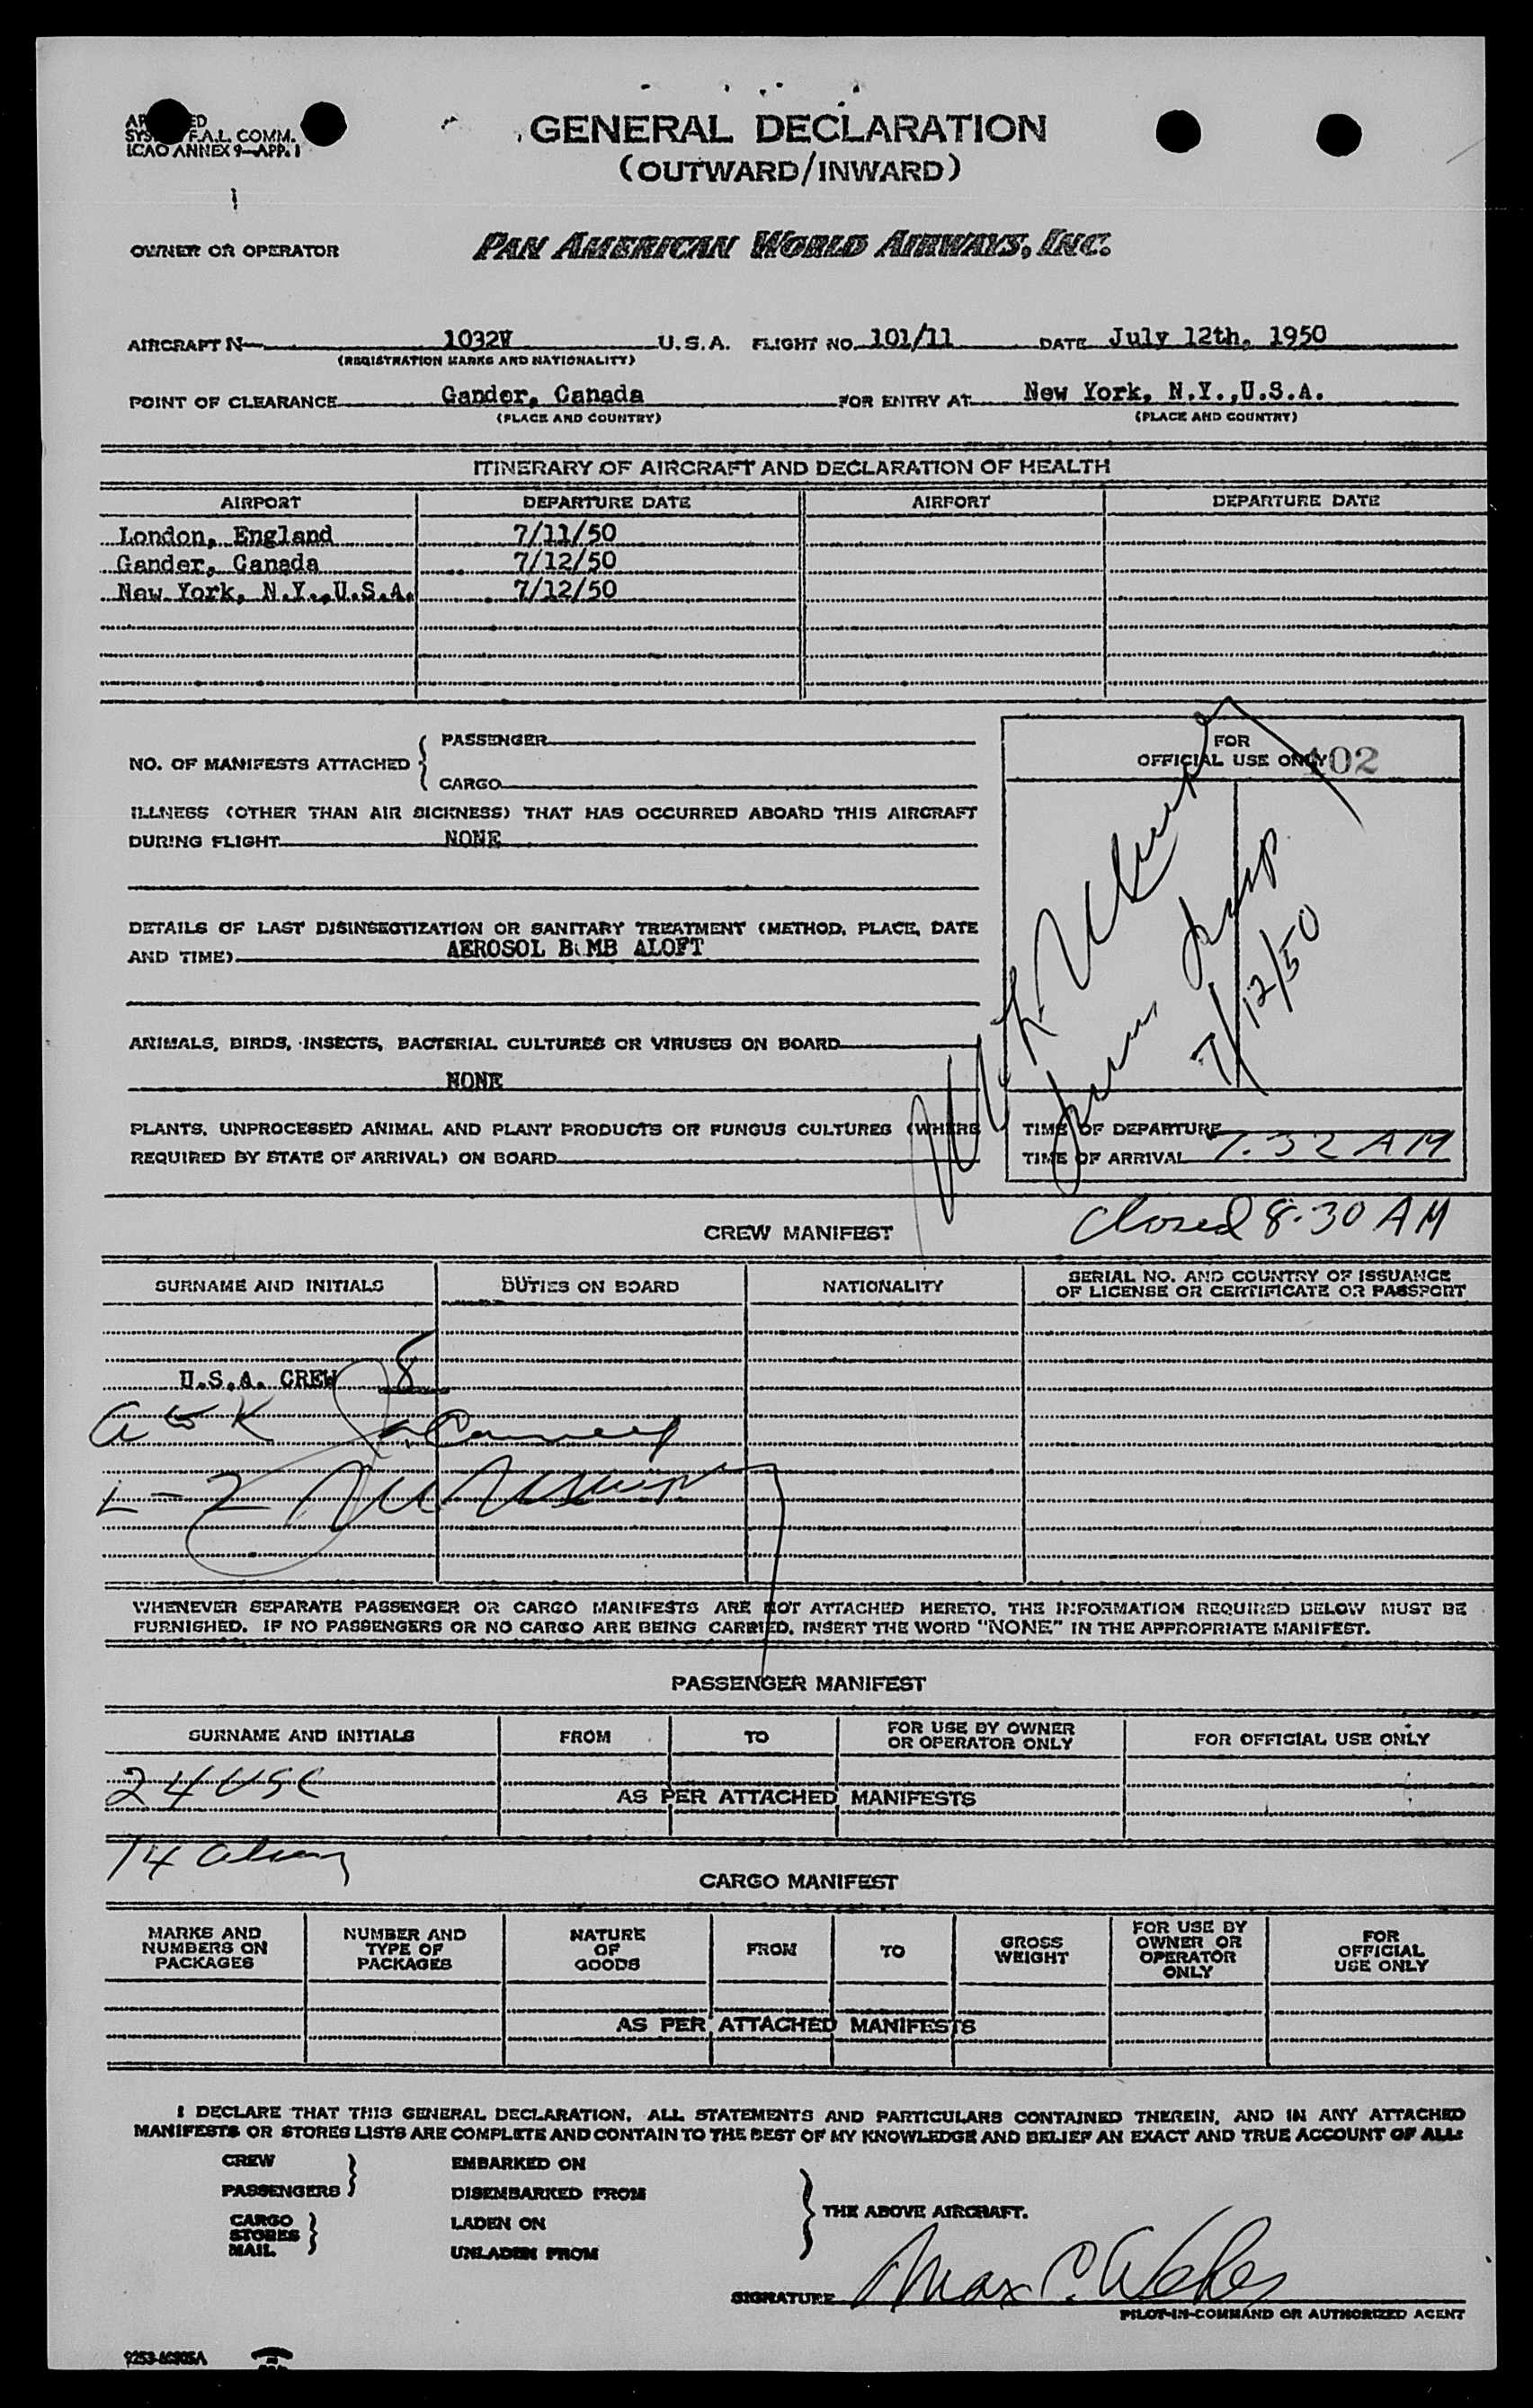 F.A.L. COMM.
ICAO ANNEX 9—APP. 1
GENERAL DECLARATION
(OUTWARD/INWARD)
OWNER OR OPERATOR PAN AMERICAN WORLD AIRWAYS, INC.
AIRCRAFT N 1032V U.S.A. FLIGHT NO. 101/11 DATE July 12th, 1950
(REGISTRATION MARKS AND NATIONALITY)
POINT OF CLEARANCE Gander, Canada FOR ENTRY AT New York, N.Y.,U.S.A.
(PLACE AND COUNTRY) (PLACE AND COUNTRY)
ITINERARY OF AIRCRAFT AND DECLARATION OF HEALTH
AIRPORT DEPARTURE DATE AIRPORT DEPARTURE DATE
London, England 7/11/50
Gander, Canada 7/12/50
New York, N.Y.,U.S.A. 7/12/50
NO. OF MANIFESTS ATTACHED { PASSENGER
CARGO
FOR
OFFICIAL USE ONLY 102
ILLNESS (OTHER THAN AIR SICKNESS) THAT HAS OCCURRED ABOARD THIS AIRCRAFT
DURING FLIGHT NONE
DETAILS OF LAST DISINSECTIZATION OR SANITARY TREATMENT (METHOD, PLACE, DATE
AND TIME) AEROSOL B MB ALOFT
7/12/50
ANIMALS, BIRDS, INSECTS, BACTERIAL CULTURES OR VIRUSES ON BOARD
NONE
PLANTS, UNPROCESSED ANIMAL AND PLANT PRODUCTS OR FUNGUS CULTURES (WHERE
REQUIRED BY STATE OF ARRIVAL) ON BOARD
TIME OF DEPARTURE
TIME OF ARRIVAL 7.32 AM
Closed 8.30 AM
CREW MANIFEST
SURNAME AND INITIALS DUTIES ON BOARD NATIONALITY SERIAL NO. AND COUNTRY OF ISSUANCE
OF LICENSE OR CERTIFICATE OR PASSPORT
U.S.A. CREW 8
A to K
L-Z
WHENEVER SEPARATE PASSENGER OR CARGO MANIFESTS ARE NOT ATTACHED HERETO, THE INFORMATION REQUIRED BELOW MUST BE
FURNISHED. IF NO PASSENGERS OR NO CARGO ARE BEING CARRIED, INSERT THE WORD "NONE" IN THE APPROPRIATE MANIFEST.
PASSENGER MANIFEST
SURNAME AND INITIALS FROM TO FOR USE BY OWNER
OR OPERATOR ONLY FOR OFFICIAL USE ONLY
24 USC
AS PER ATTACHED MANIFESTS
14 alien
CARGO MANIFEST
MARKS AND
NUMBERS ON
PACKAGES
NUMBER AND
TYPE OF
PACKAGES
NATURE
OF
GOODS
FROM
TO
GROSS
WEIGHT
FOR USE BY
OWNER OR
OPERATOR
ONLY
FOR
OFFICIAL
USE ONLY
AS PER ATTACHED MANIFESTS
I DECLARE THAT THIS GENERAL DECLARATION, ALL STATEMENTS AND PARTICULARS CONTAINED THEREIN, AND IN ANY ATTACHED
MANIFESTS OR STORES LISTS ARE COMPLETE AND CONTAIN TO THE BEST OF MY KNOWLEDGE AND BELIEF AN EXACT AND TRUE ACCOUNT OF ALL:
CREW } EMBARKED ON
PASSENGERS DISEMBARKED FROM
CARGO } LADEN ON
STORES
MAIL UNLADEN FROM
} THE ABOVE AIRCRAFT.
SIGNATURE Max C. Weber
PILOT-IN-COMMAND OR AUTHORIZED AGENT